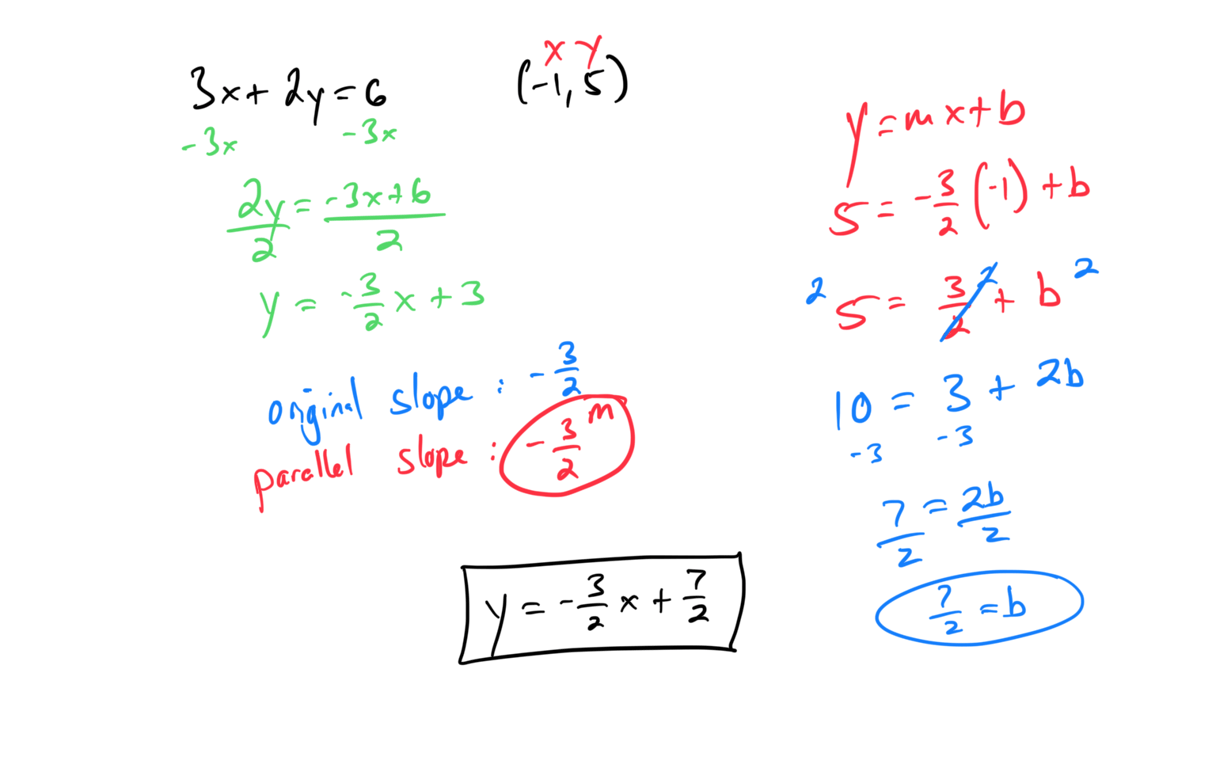 x y
3x + 2y = 6
(-1, 5)
-3x -3x
2y/2 = -3x+6/2
y = -3/2 x + 3
original slope : -3/2
parallel slope : -3/2 m
y = -3/2 x + 7/2
y = mx + b
5 = -3/2 (-1) + b
2 5 = 3/2 2 + b 2
10 = 3 + 2b
-3 -3
7/2 = 2b/2
7/2 = b